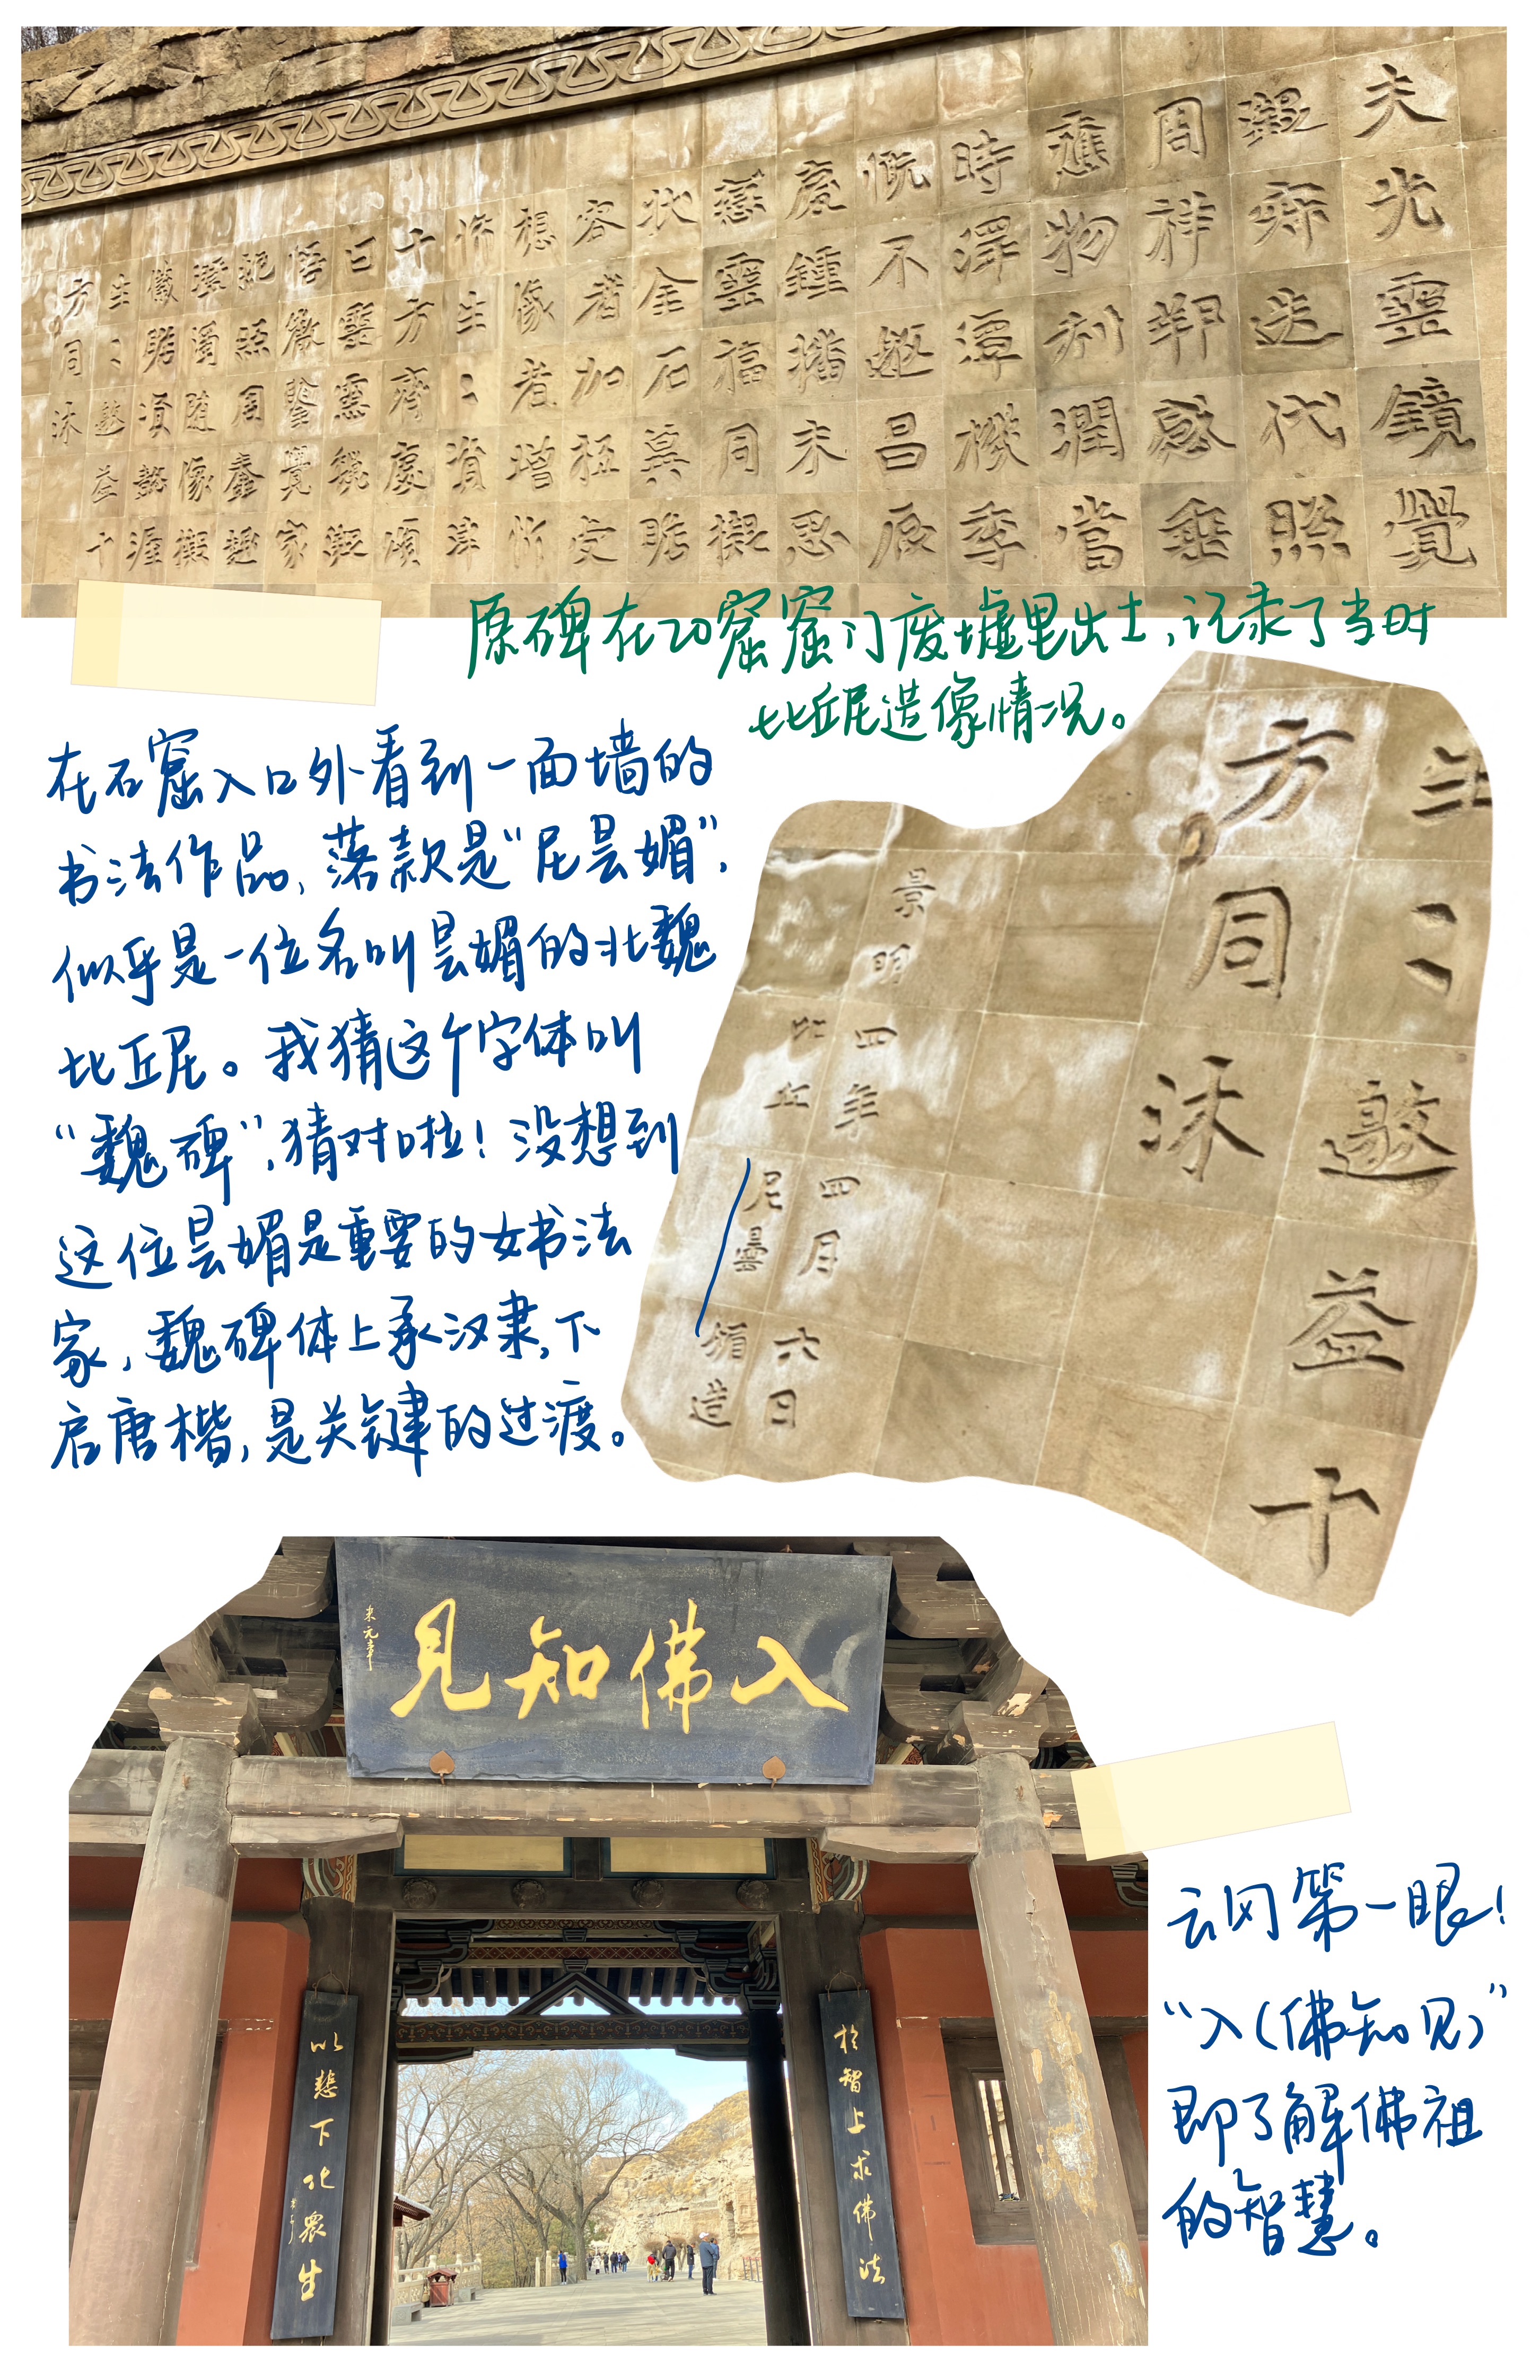 夫光靈鏡覺
凝寂迭代照
周祥邦感垂
應物利潤當
時澤潭機季
慨不邀昌辰
慶鍾播末思
戀靈福同擬
状金石冀瞻
容者加極虔
想像者增忻
悕生〻資津
十方齊慶頌
曰靈慮巍凝
悟徹鑒覺寂
絶照周蠢趣
澤濁随像擬
儀瞻資懿渥
生〻邀益十
方同沐
原碑在20窟窟门废墟里出土,记录了当时
比丘尼造像情况。
在石窟入口外看到一面墙的
书法作品,落款是“尼昙媚”,
似乎是一位名叫昙媚的北魏
比丘尼。我猜这个字体叫
“魏碑”,猜对啦!没想到
这位昙媚是重要的女书法
家,魏碑体上承汉隶,下
启唐楷,是关键的过渡。
生〻邀益十
方同沐
景明四年四月六日
比丘尼曇媚造
入佛知見
宋元章
於智上求佛法
以慈下化眾生
云冈第一眼!
“入(佛知见)”
即了解佛祖
的智慧。